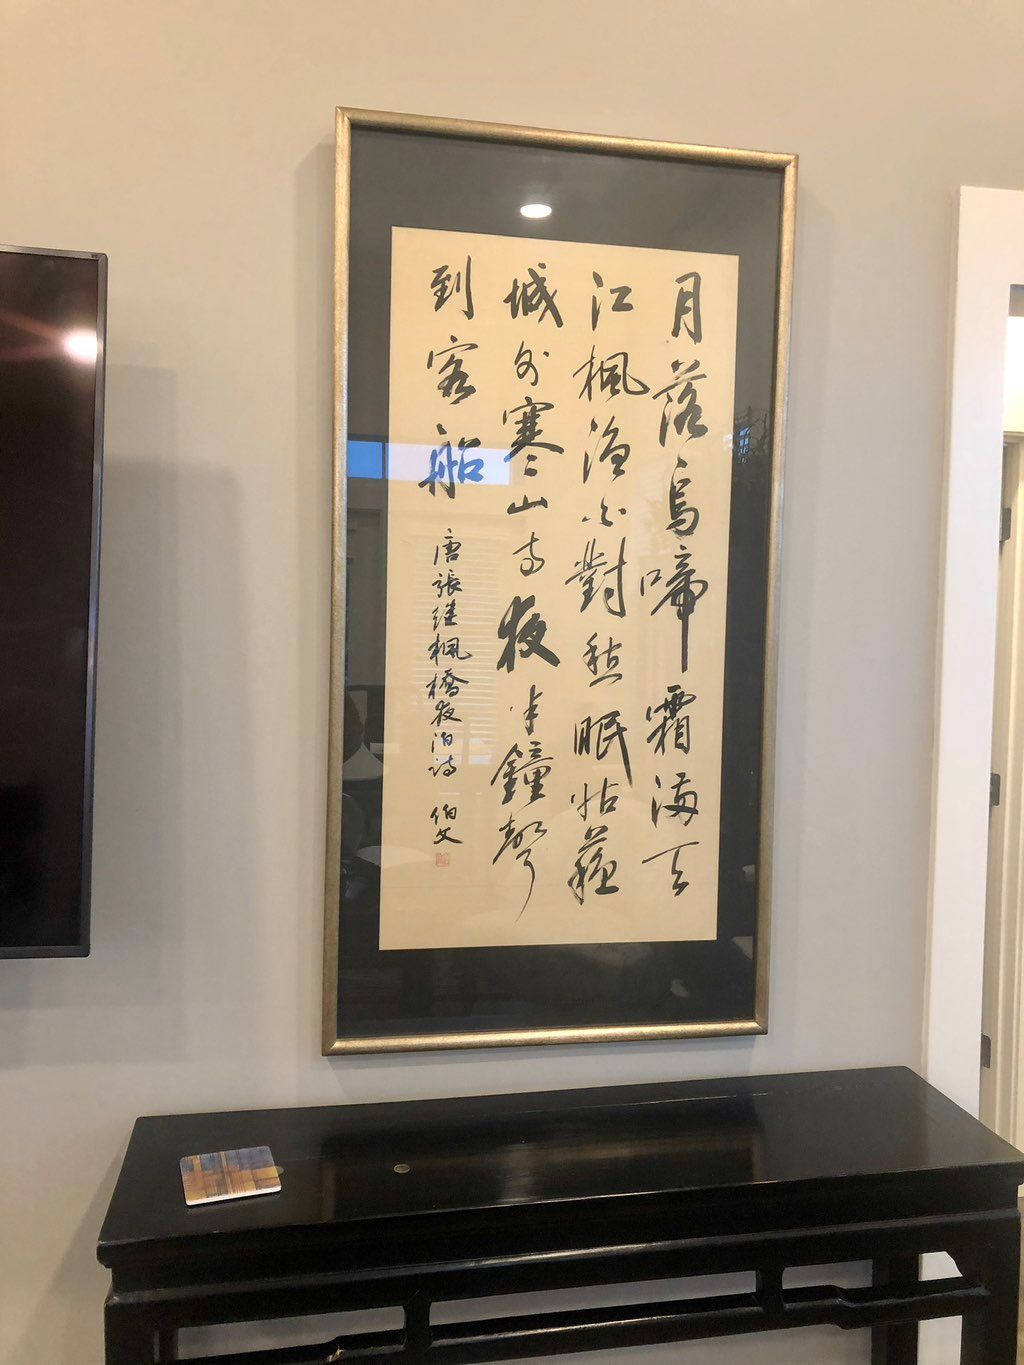 月落烏啼霜滿天
江楓漁火對愁眠姑蘇
城外寒山寺夜半鐘聲
到客船
唐張继楓橋夜泊詩 伯文